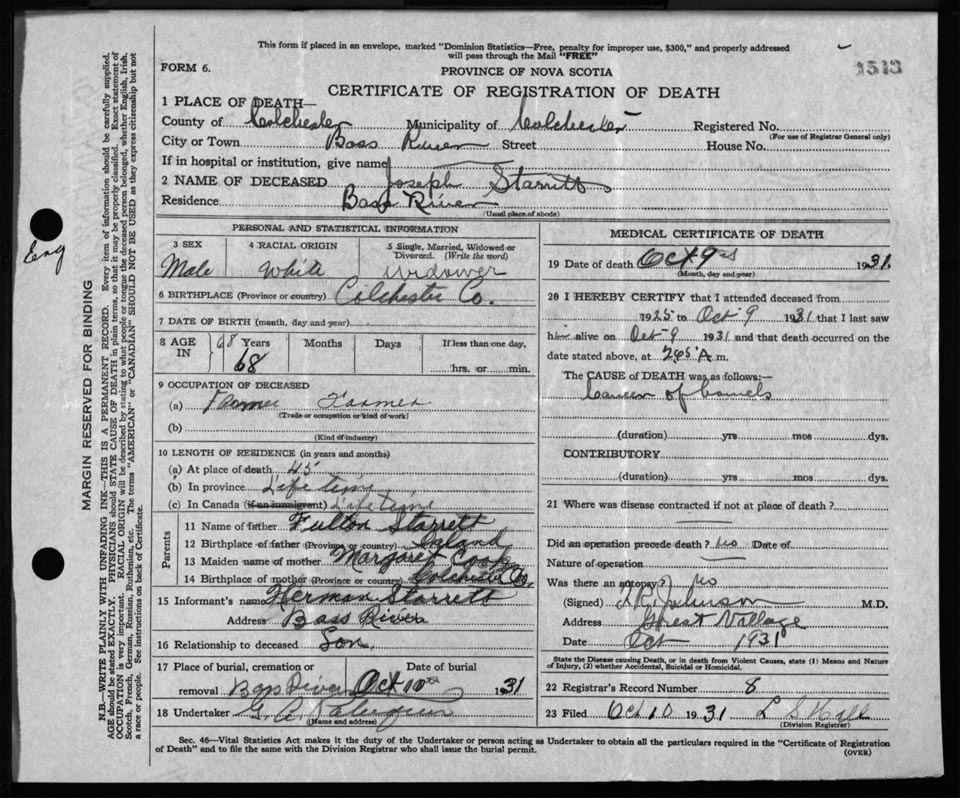 This form if placed in an envelope, marked "Dominion Statistics—Free, penalty for improper use, $300," and properly addressed
will pass through the Mail "FREE"
1513
FORM 6.
PROVINCE OF NOVA SCOTIA
CERTIFICATE OF REGISTRATION OF DEATH
1 PLACE OF DEATH—
County of Colchester Municipality of Colchester Registered No.
(For use of Registrar General only)
City or Town Bass River Street House No.
If in hospital or institution, give name
2 NAME OF DECEASED Joseph Starritt
Residence Bass River
(Usual place of abode)
PERSONAL AND STATISTICAL INFORMATION
3 SEX 4 RACIAL ORIGIN 5 Single, Married, Widowed or Divorced. (Write the word)
Male White Widower
6 BIRTHPLACE (Province or country) Colchester Co.
7 DATE OF BIRTH (month, day and year)
8 AGE IN 68 Years Months Days If less than one day,
68 hrs. or min.
9 OCCUPATION OF DECEASED
(a) Farmer Farmer
(Trade or occupation or kind of work)
(b)
(Kind of industry)
10 LENGTH OF RESIDENCE (in years and months)
(a) At place of death 45
(b) In province Life time
(c) In Canada (if an immigrant) Life time
Parents
11 Name of father Fulton Starrett
12 Birthplace of father (Province or country)
13 Maiden name of mother Margaret Cook
14 Birthplace of mother (Province or country) Colchester Co.
15 Informant's name Herman Starrett
Address Bass River
16 Relationship to deceased Son.
17 Place of burial, cremation or Date of burial
removal Bass River Oct 10th 1931
18 Undertaker G. A.
(Name and address)
MEDICAL CERTIFICATE OF DEATH
19 Date of death Oct 9th 1931.
(Month, day and year)
20 I HEREBY CERTIFY that I attended deceased from
1925 to Oct 9 1931 that I last saw
him alive on Oct 9 1931 and that death occurred on the
date stated above, at 245 A m.
The CAUSE of DEATH was as follows:—
Cancer of bowels
(duration) yrs mos dys.
CONTRIBUTORY
(duration) yrs mos dys.
21 Where was disease contracted if not at place of death?
Did an operation precede death? no Date of
Nature of operation
Was there an autopsy? no
(Signed) T. R. Johnson M.D.
Address Great Village
Date Oct 1931
State the Disease causing Death, or in death from Violent Causes, state (1) Means and Nature
of Injury, (2) whether Accidental, Suicidal or Homicidal.
22 Registrar's Record Number 8
23 Filed Oct 10 1931 L S Hill
(Division Registrar)
Sec. 46—Vital Statistics Act makes it the duty of the Undertaker or person acting as Undertaker to obtain all the particulars required in the "Certificate of Registration
of Death" and to file the same with the Division Registrar who shall issue the burial permit.
(OVER)
Eng
MARGIN RESERVED FOR BINDING
N.B.—WRITE PLAINLY WITH UNFADING INK—THIS IS A PERMANENT RECORD. Every item of information should be carefully supplied.
AGE should be stated EXACTLY. PHYSICIANS should STATE CAUSE OF DEATH in plain terms, so that it may be properly classified. Exact statement of
OCCUPATION is very important. RACIAL ORIGIN will be described by stating to what people or tongue the deceased person belonged, whether English, Irish,
Scotch, French, German, Russian, Ruthenian, etc. The terms "AMERICAN" or "CANADIAN" SHOULD NOT BE USED as they express citizenship but not
a race or people. See instructions on back of Certificate.